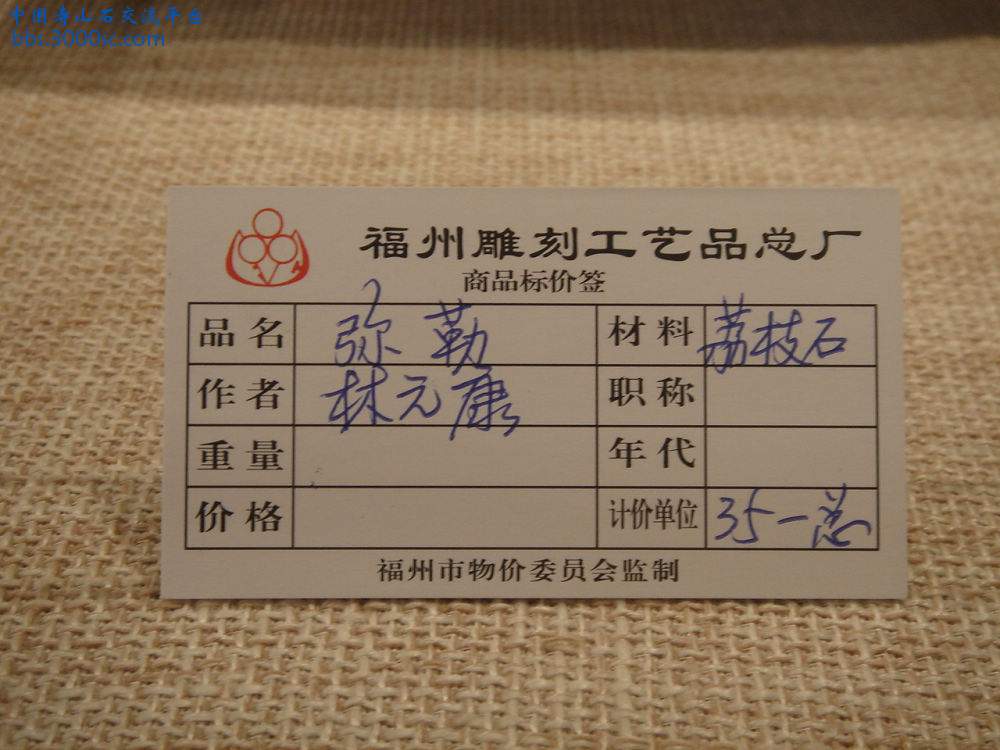 中国寿山石交流平台
bbs.3000ic.com
福州雕刻工艺品总厂
商品标价签
品名 弥勒 材料 荔枝石
作者 林元康 职称
重量 年代
价格 计价单位 35-总
福州市物价委员会监制